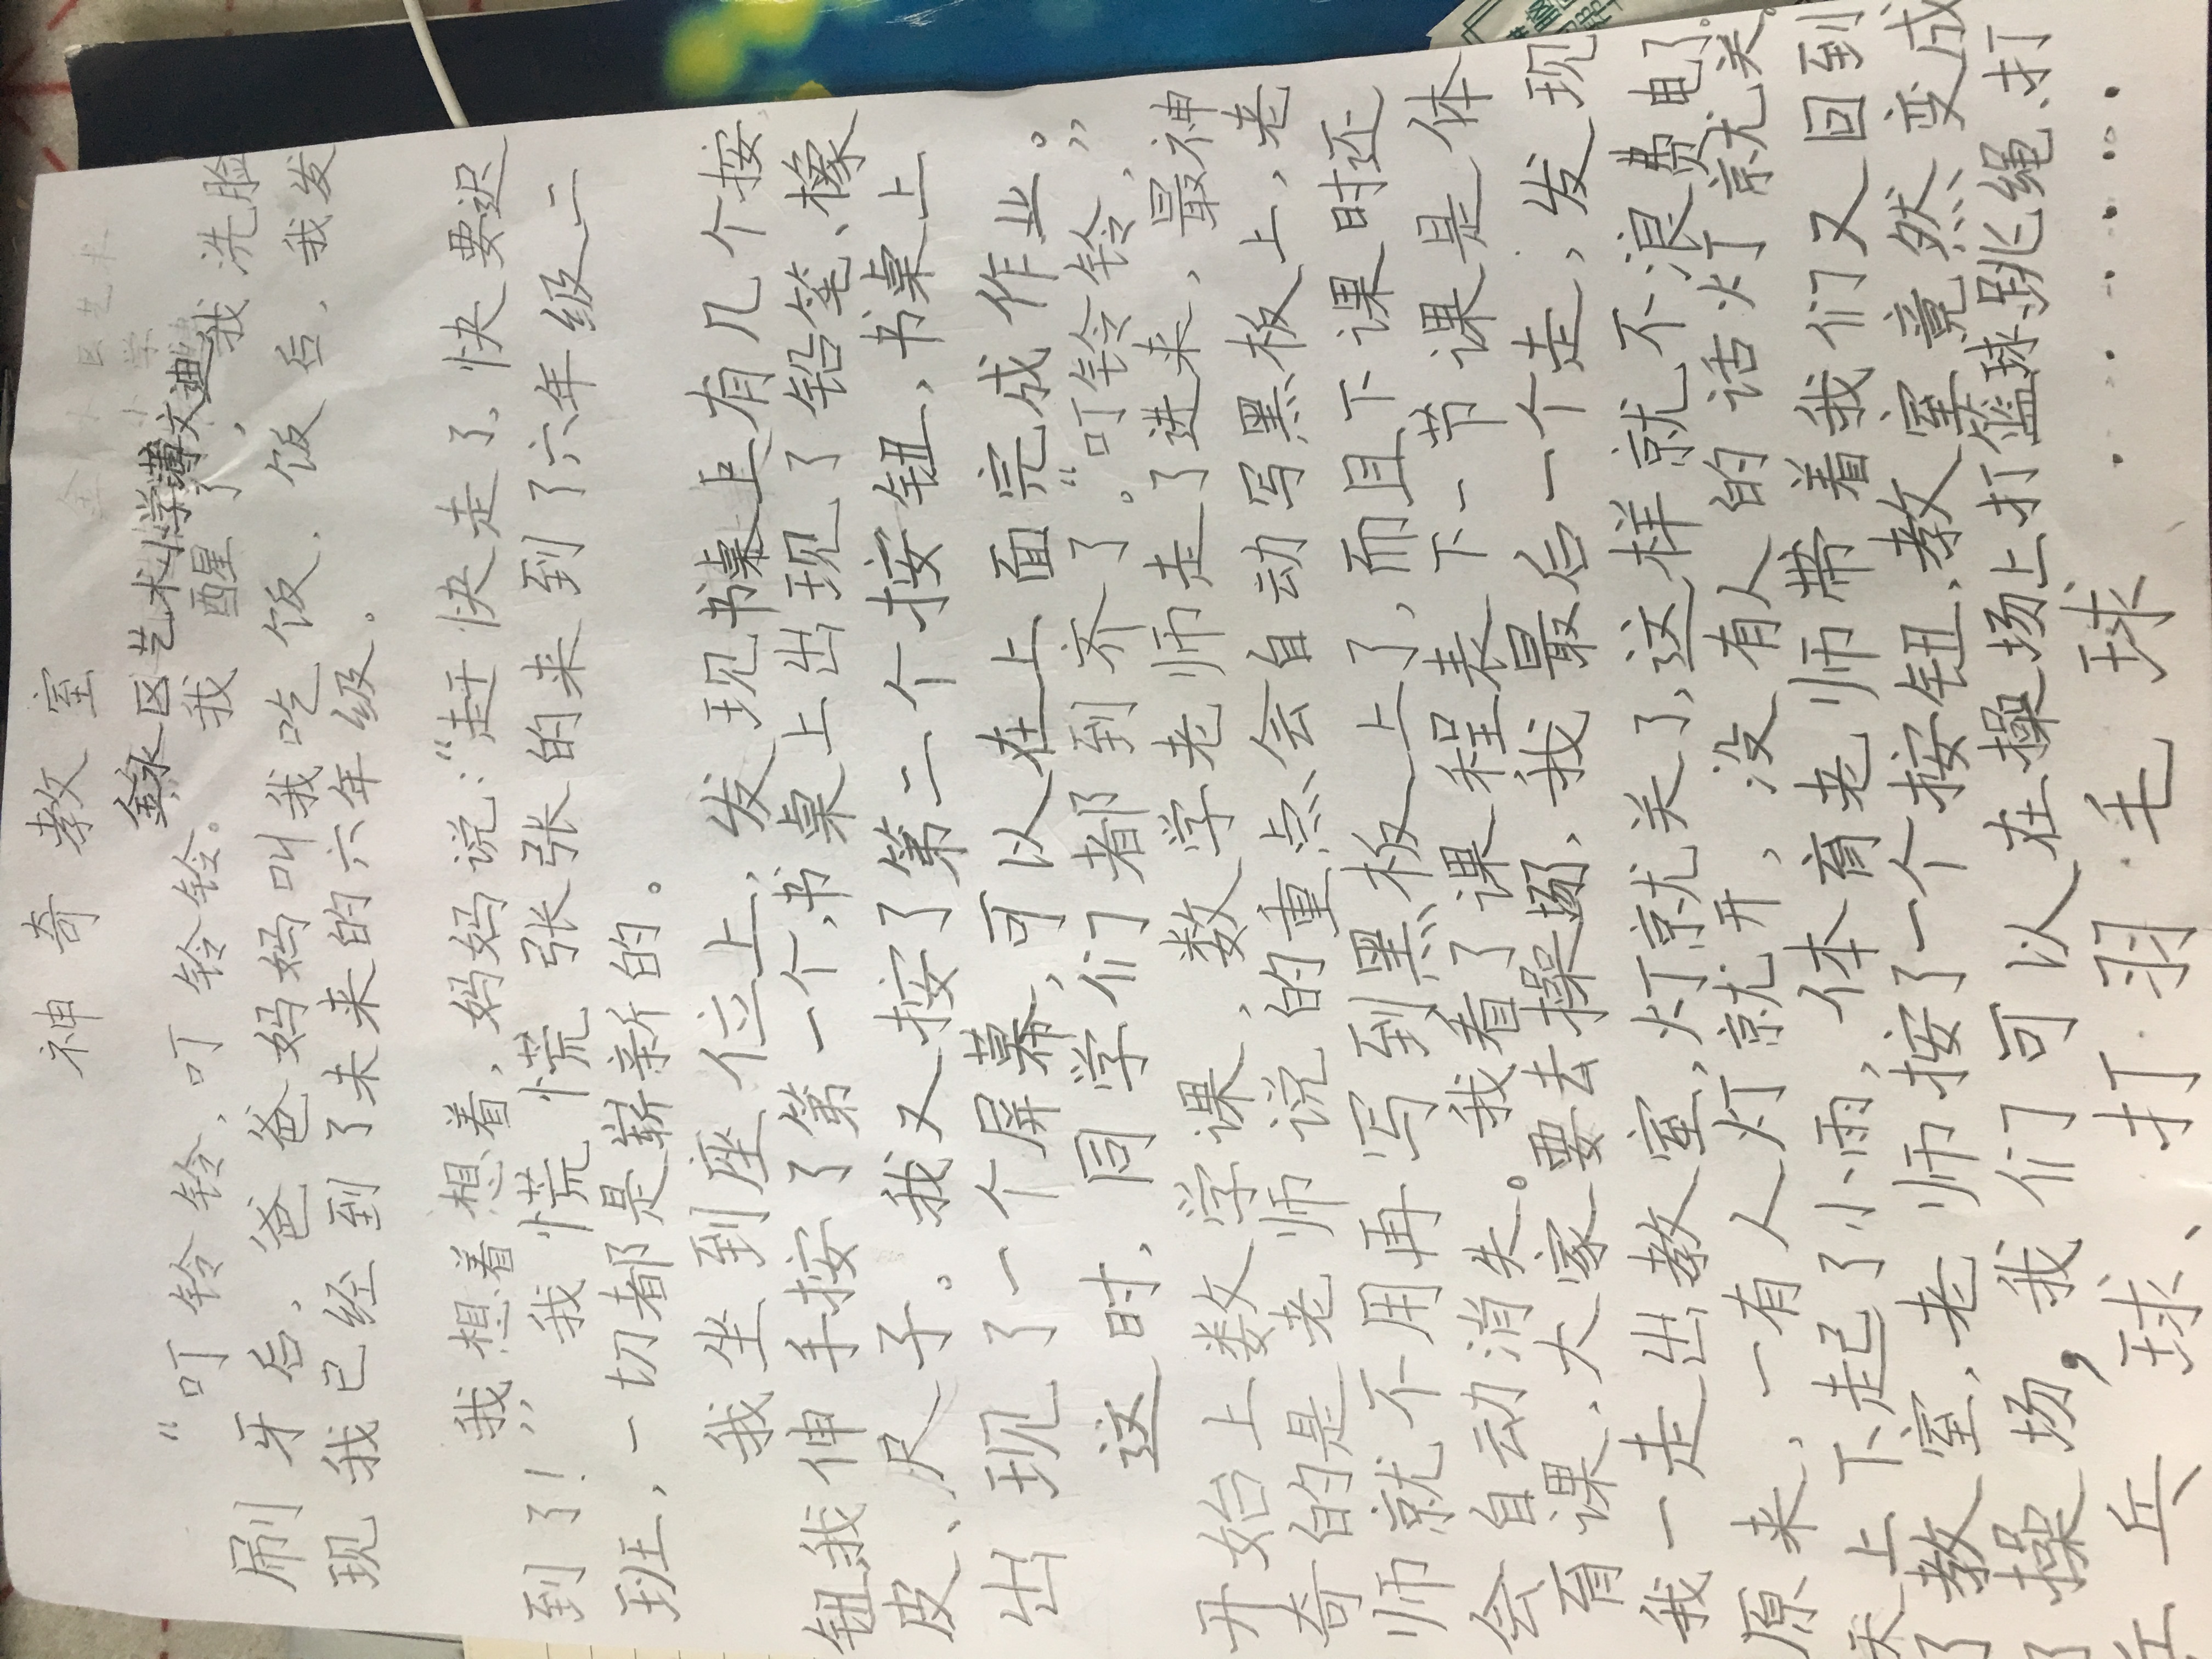 神奇教室
金水区艺术小学薄文迪
“叮铃铃，叮铃铃。我醒了，我洗脸
刷牙后，爸爸妈妈叫我吃饭，饭后，我发
现我已经到了未来的六年级。
我想着想着，妈妈说：“赶快走了，快要迟
到了！”我慌慌张张的来到了六年级二
班，一切都是崭新的。
我坐到座位上，发现书桌上有几个按
钮，我伸手按了第一个，书桌上出现了铅笔、橡
皮、尺子。我又按了第二个按钮，书桌上
出现了一个屏幕，可以在上面完成作业。”
这时，同学们都到齐了。“叮铃铃铃，
开始上数学课，数学老师走了进来，最神
奇的是老师说的重点会自动写黑板上，老
师就不用再写到黑板上了，而且下课时还
会自动消失。我看了课程表下一节课是体
育课，大家要去操场，我最后一个走，发现
我一走出教室，灯就关了，这样就不浪费电了。
原来，一有人灯就开，没有人的话灯就关。
天上下起了小雨，体育老师带着我们又回到
了教室，老师按了一个按钮，教室竟然变成
了操场，我们可以在操场上打篮球跳绳、打
乒乓球、打羽毛球……